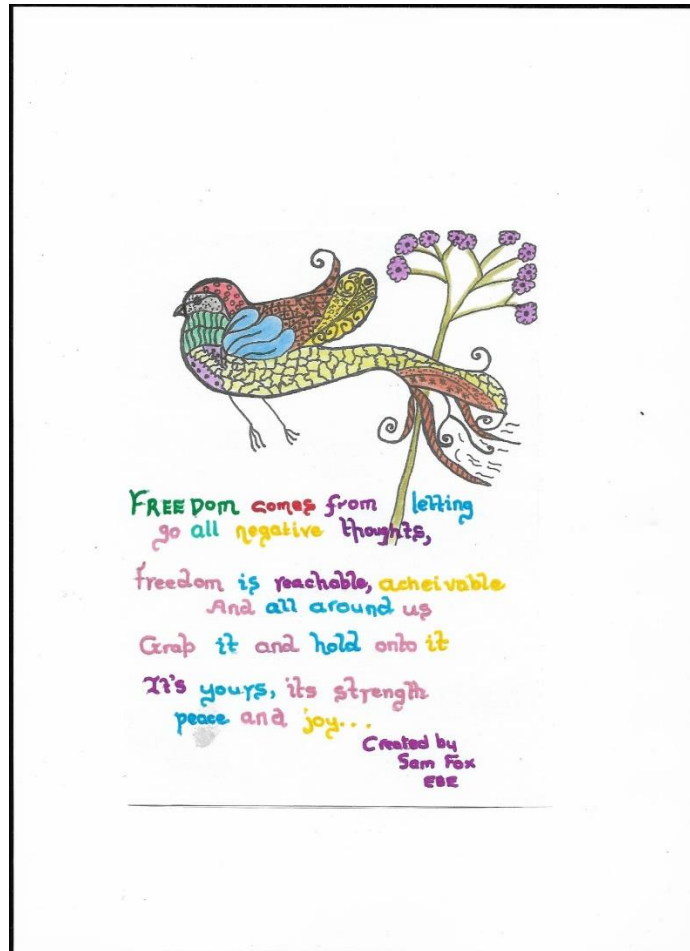 FREEDom comes from letting
go all negative thoughts,
freedom is reachable, acheivable
And all around us
Grab it and hold onto it
It's yours, its strength
peace and joy...
Created by
Sam Fox
EBE